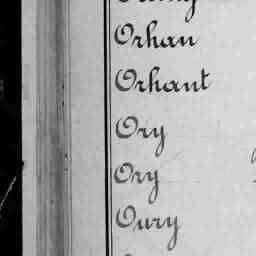 Orhan
Orhant
Ory
Ory
Oury